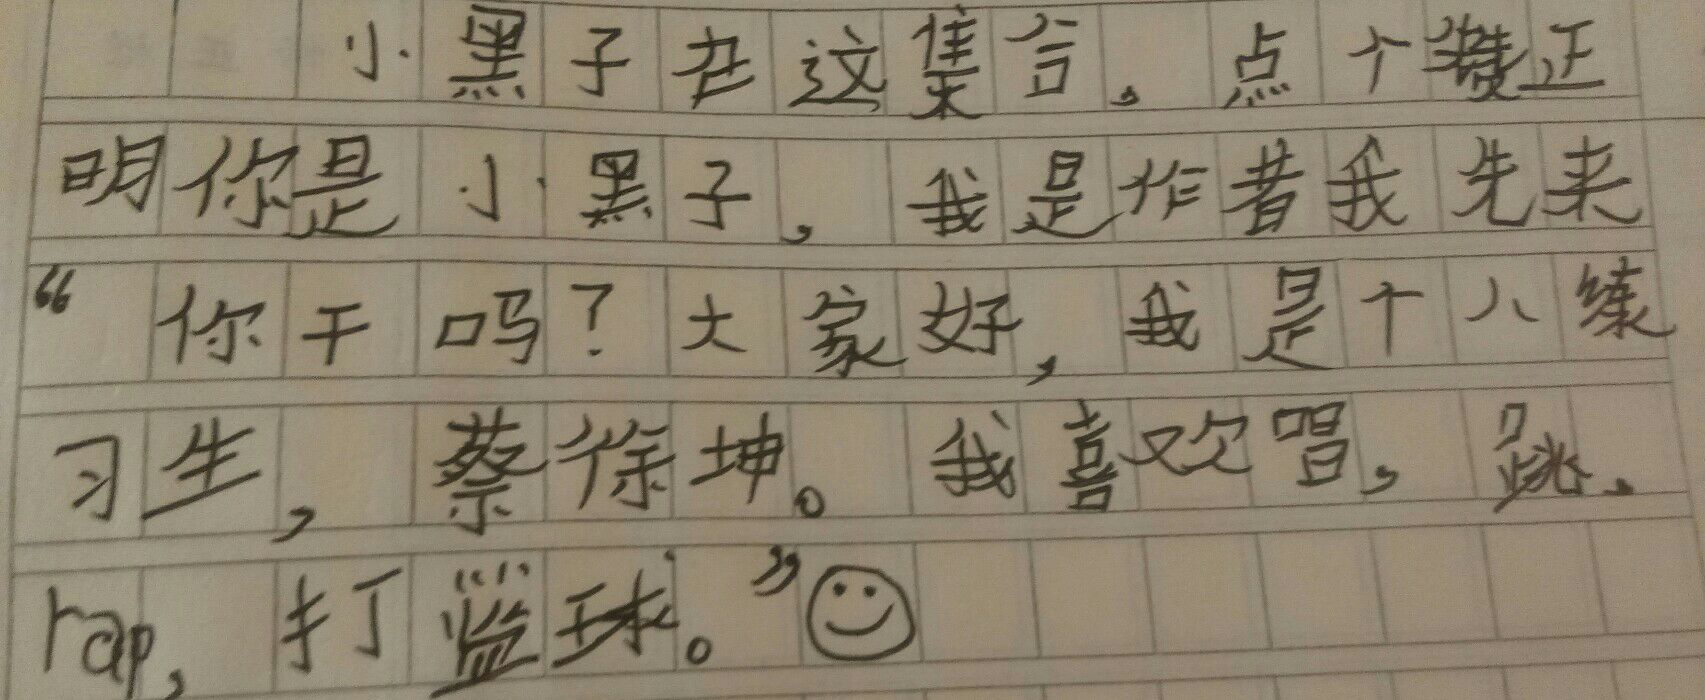 小黑子在这集合,点个赞正
明你是小黑子,我是作者我先来
“你干吗?大家好,我是个八练
习生,蔡徐坤。我喜欢唱,跳、
rap,打篮球。”